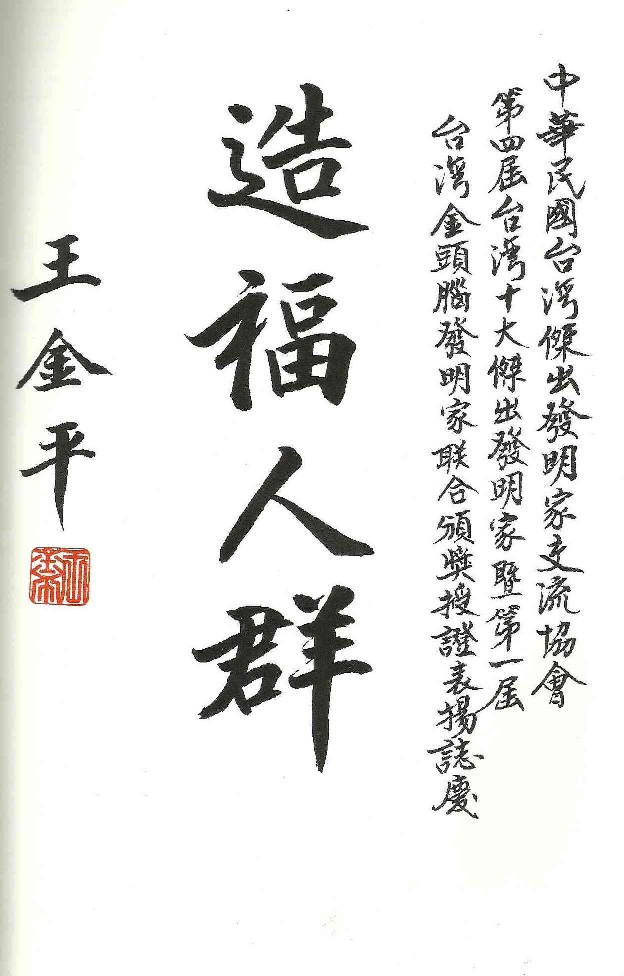 中華民國台灣傑出發明家交流協會
第四屆台灣十大傑出發明家暨第一屆
台灣金頭腦發明家聯合頒獎授證表揚誌慶
造福人群
王金平